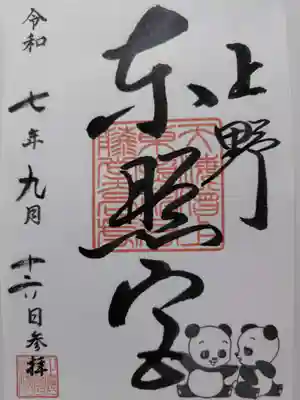 上野
東照宮
令和七年九月
日参拝